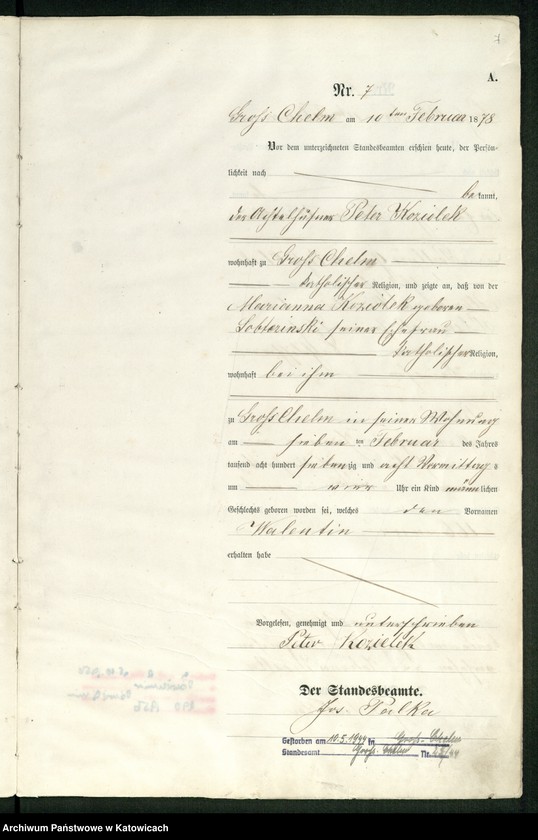 7
A.
Nr. 7
Gross Chelm am 10 ten Februar 1878
Vor dem unterzeichneten Standesbeamten erschien heute, der Persön-
lichkeit nach
bekannt,
der Peter Koziolek
wohnhaft zu Gross Chelm
katholischer Religion, und zeigte an, daß von der
Marianna Koziolek geboren
seiner Ehefrau
katholischer Religion,
wohnhaft bei ihm
zu Gross Chelm in seiner Wohnung
am sieben ten Februar des Jahres
tausend acht hundert siebenzig und acht Vormittags
um vier Uhr ein Kind männlichen
Geschlechts geboren worden sei, welches den Vornamen
Walentin
erhalten habe
Vorgelesen, genehmigt und unterschrieben
Peter Koziolek
Der Standesbeamte.
Jos. Palka
Gestorben am 10.5.1944 in Gross-Chelm
Standesamt Gross-Chelm Nr. /44
Archiwum Państwowe w Katowicach